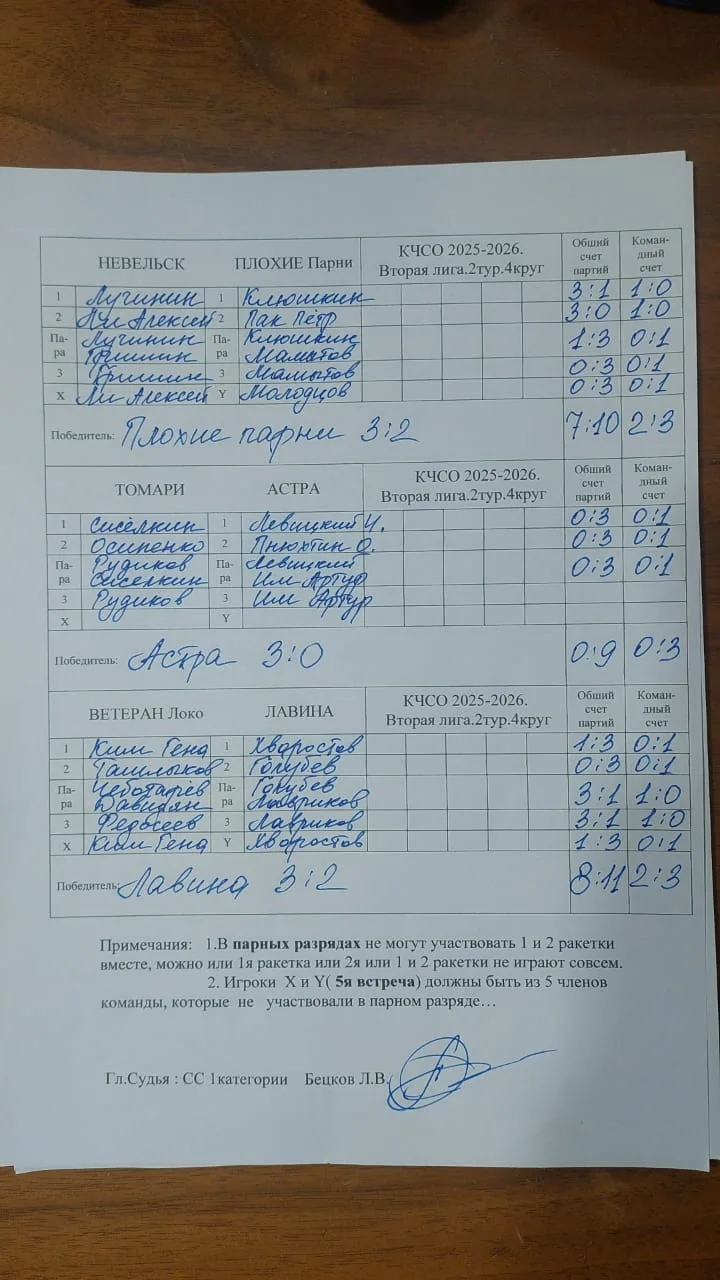 НЕВЕЛЬСК ПЛОХИЕ Парни КЧСО 2025-2026. Вторая лига.2тур.4круг Общий счет партий Коман-дный счет
1 Лучинин 1 Клюшкин 3:1 1:0
2 Ли Алексей 2 Пак Пётр 3:0 1:0
Па-ра Лучинин Па-ра Клюшкин 1:3 0:1
Гришин Мамытов
3 Гришин 3 Мамытов 0:3 0:1
X Ли Алексей Y Молодцов 0:3 0:1
Победитель: Плохие парни 3:2 7:10 2:3
ТОМАРИ АСТРА КЧСО 2025-2026. Вторая лига.2тур.4круг Общий счет партий Коман-дный счет
1 Сисёлкин 1 Левицкий И. 0:3 0:1
2 Осипенко 2 Пнюхтин О. 0:3 0:1
Па-ра Рудиков Па-ра Левицкий 0:3 0:1
Сиселкин Им Артур
3 Рудиков 3 Им Артур
X Y
Победитель: Астра 3:0 0:9 0:3
ВЕТЕРАН Локо ЛАВИНА КЧСО 2025-2026. Вторая лига.2тур.4круг Общий счет партий Коман-дный счет
1 Ким Гена 1 Хворостов 1:3 0:1
2 Ташлыков 2 Голубев 0:3 0:1
Па-ра Чеботарёв Па-ра Голубев 3:1 1:0
Давидян Лавриков
3 Федосеев 3 Лавриков 3:1 1:0
X Ким Гена Y Хворостов 1:3 0:1
Победитель: Лавина 3:2 8:11 2:3
Примечания: 1.В парных разрядах не могут участвовать 1 и 2 ракетки
вместе, можно или 1я ракетка или 2я или 1 и 2 ракетки не играют совсем.
2. Игроки X и Y( 5я встреча) должны быть из 5 членов
команды, которые не участвовали в парном разряде…
Гл.Судья : СС 1категории Бецков Л.В.